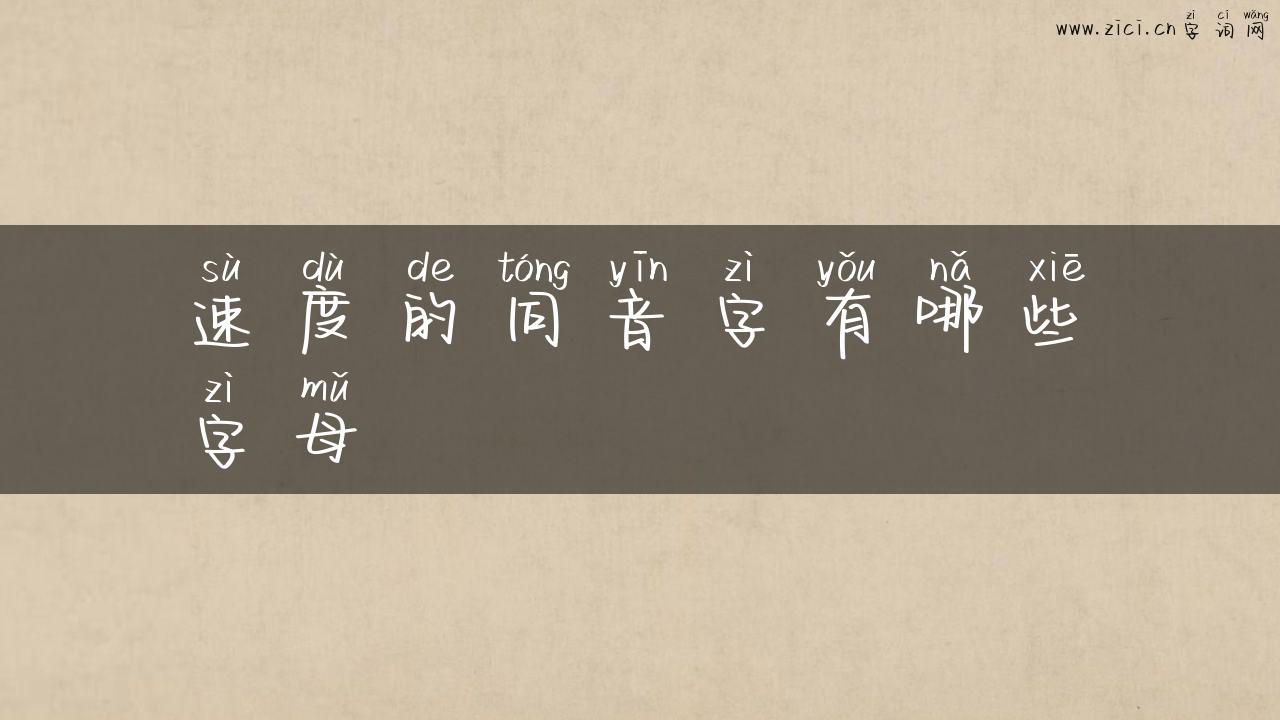 zì cí wǎng
www.zici.cn 字词网
sù dù de tóng yīn zì yǒu nǎ xiē
速度的同音字有哪些
zì mǔ
字母